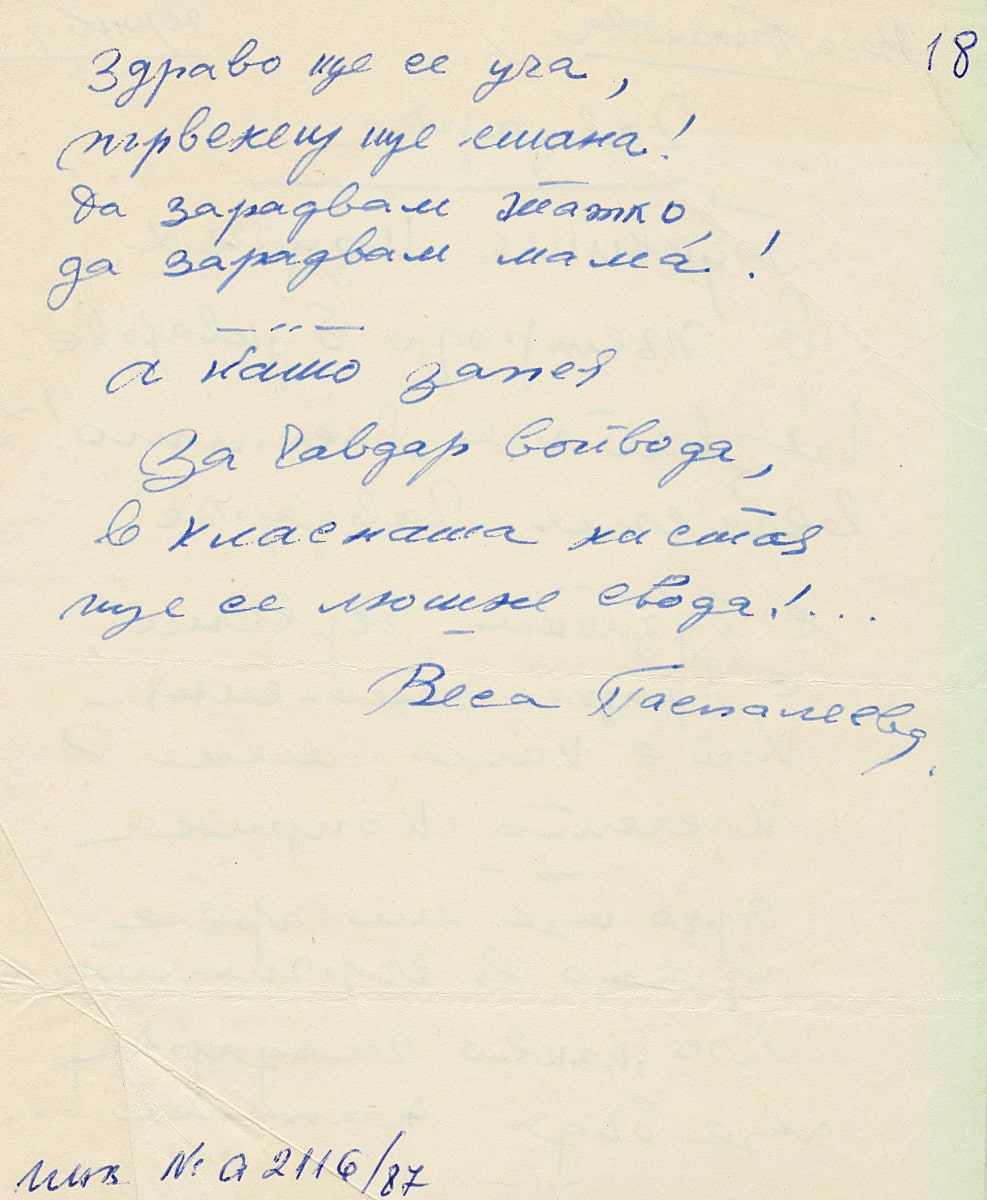 18
Здраво ще се уча,
първенец ще стана!
Да зарадвам татко,
да зарадвам мама!
А пъшо запея
За Чавдар войвода,
в класната ни стая
ще се люшне свода!...
Веса Паспалеева.
инв № а 2116/87